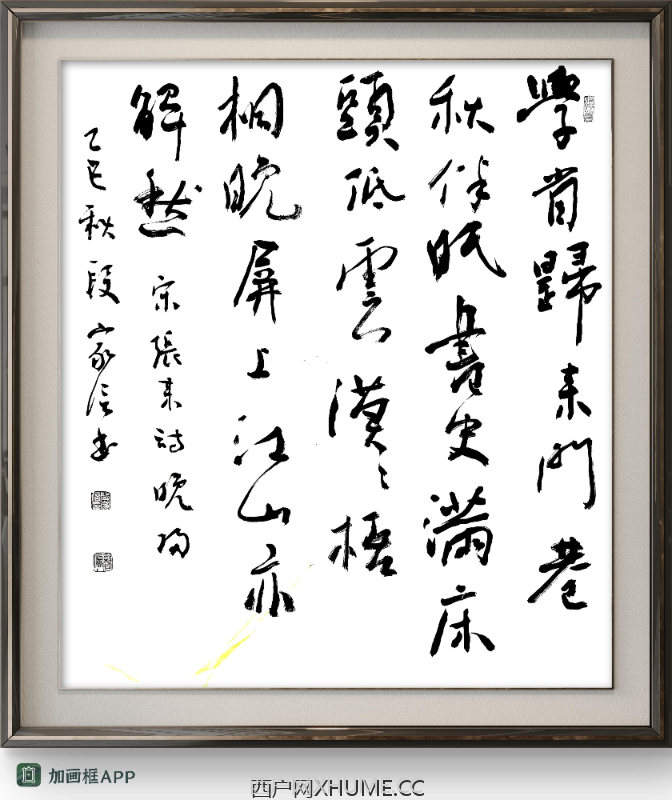 學省歸来門巷
秋伴眠書史滿床
頭低雲漠々梧
桐晚屏上江山亦
解愁 宋張耒詩晚归
乙巳秋段家信书
加画框APP
西户网XHUME.CC